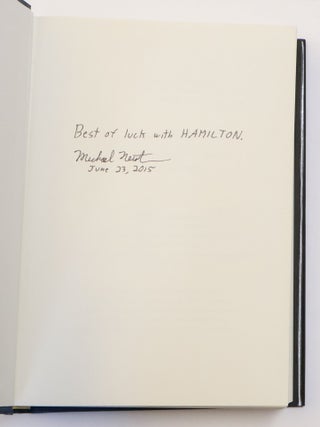 Best of luck with HAMILTON.
Michael
June 23, 2015